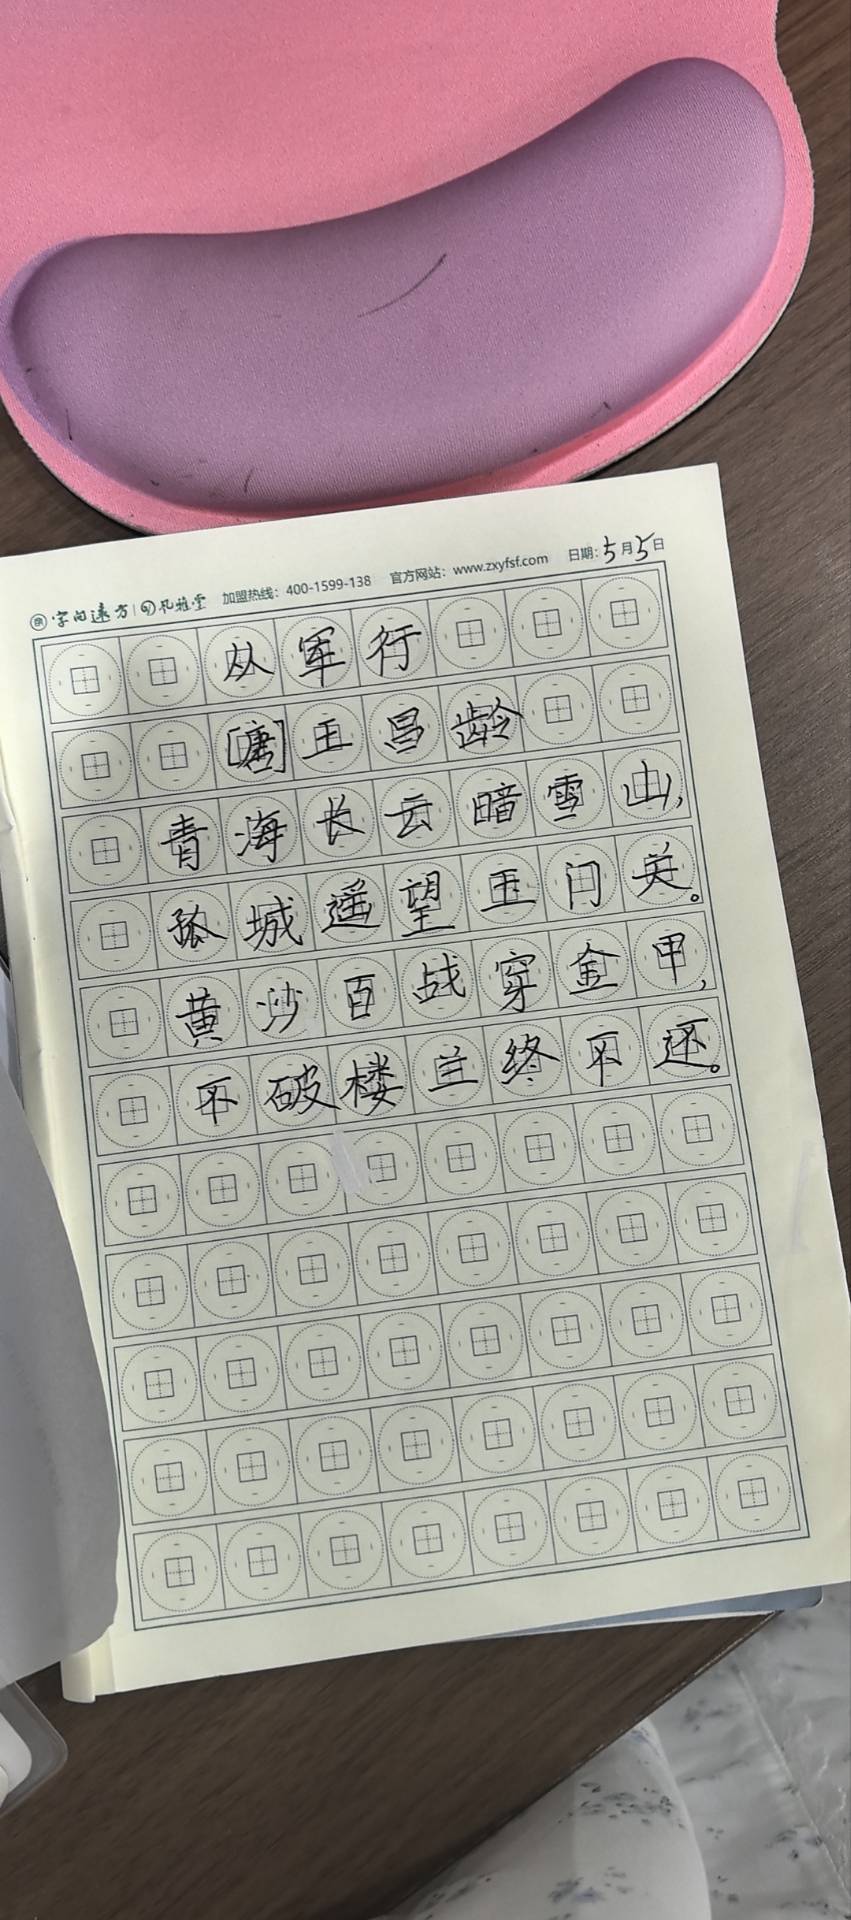 字间远方 凡雅堂 加盟热线：400-1599-138 官方网站：www.zxyfsf.com 日期：5月5日
从军行
[唐]王昌龄
青海长云暗雪山，
孤城遥望玉门关。
黄沙百战穿金甲，
不破楼兰终不还。